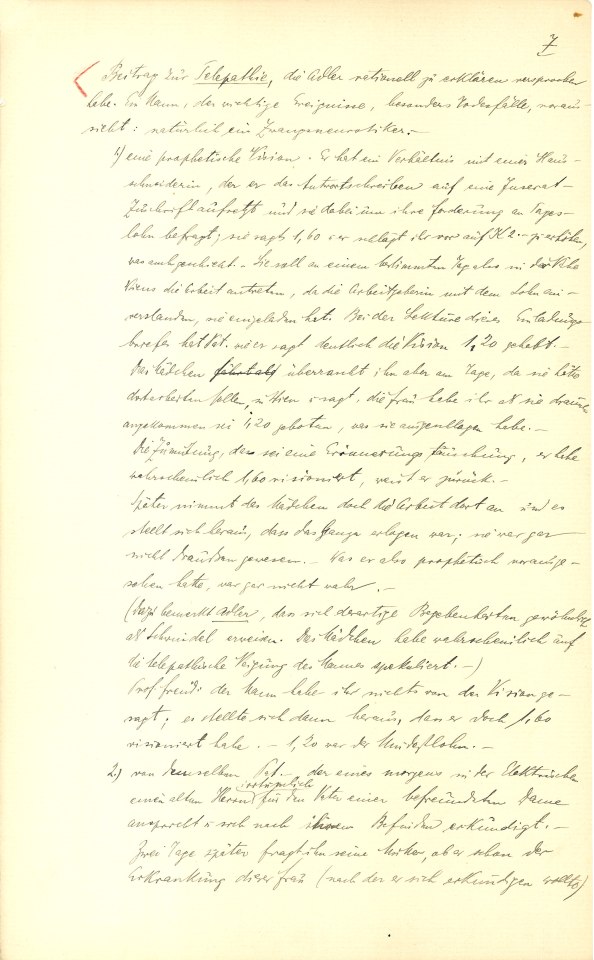 7
Beitrag zur Telepathie, die Adler rationell zu erklären versprochen
habe. Ein Mann, der wichtige Ereignisse, besonders Todesfälle, voraus-
sieht: natürlich ein Zwangsneurotiker.-
1) eine prophetische Vision. Er hat ein Verhältnis mit einer Haus-
schneiderin, der er das Antwortschreiben auf eine Inserat-
Zuschrift aufsetzt und sie dabei um ihre Forderung an Tages-
lohn befragt; sie sagt 1,60 u er schlägt ihr vor auf K 2.- zu erhöhen,
was auch geschieht.- Sie soll an einem bestimmten Tag also in der Nähe
Wiens die Arbeit antreten, da die Arbeitgeberin mit dem Lohn ein-
verstanden, sie eingeladen hat. Bei der Lektüre dieses Einladungs-
briefes hat Pat. wie er sagt deutlich die Vision 1,20 gehabt.-
Das Mädchen fährt ab überrascht ihn aber am Tage, da sie hätte
dort arbeiten sollen, in Wien u sagt, die Frau habe ihr als sie draußen
angekommen sei 1,20 geboten, was sie ausgeschlagen habe.-
Die Zumutung, das sei eine Erinnerungstäuschung, er habe
wahrscheinlich 1,60 visioniert, weist er zurück.-
Später nimmt das Mädchen doch die Arbeit dort an und es
stellt sich heraus, dass das Ganze erlogen war; sie war gar
nicht draußen gewesen.- Was er also prophetisch vorausge-
sehen hatte, war gar nicht wahr.-
(Dazu bemerkt Adler, dass sich derartige Begebenheiten gewöhnlich
als Schwindel erweisen. Das Mädchen habe wahrscheinlich auf
die telepathische Neigung des Mannes spekuliert.-)
Prof. Freud: der Mann habe ihr nichts von der Vision ge-
sagt; es stellte sich dann heraus, dass er doch 1,60
visioniert habe.- 1,20 war der Mindestlohn.-
2.) von demselben Pat.- der eines morgens in der Elektrischen
einen alten Herrn irrtümlich für den Vater einer befreundeten Dame
anspricht u sich nach ihrem Befinden erkundigt.-
Zwei Tage später fragt ihn seine Mutter, ob er schon von der
Erkrankung dieser Frau (nach der er sich erkundigen wollte)